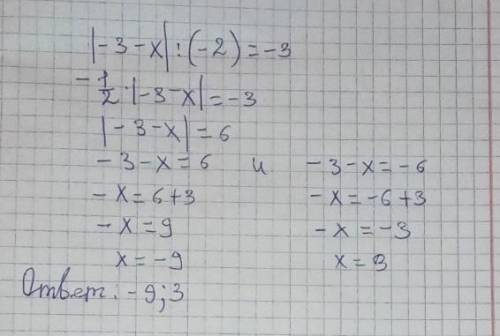 |-3-x|:(-2)=-3
-1/2·|-3-x|=-3
|-3-x|=6
-3-x=6 и -3-x=-6
-x=6+3 -x=-6+3
-x=9 -x=-3
x=-9 x=3
Ответ: -9;3